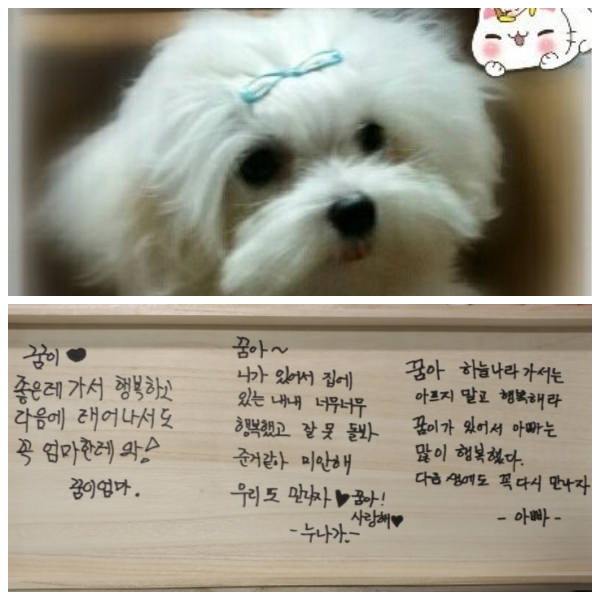 꿈이♥
좋은데 가서 행복하고
다음에 태어나서도
꼭 엄마한테 와!
꿈이엄마.
꿈아~
니가 있어서 집에
있는 내내 너무너무
행복했고 잘 못 돌봐
준거같아 미안해
우리 또 만나자♥꿈아!
사랑해♥
-누나가-
꿈아 하늘나라 가서는
아프지 말고 행복해라
꿈이가 있어서 아빠는
많이 행복했다.
다음 생에도 꼭 다시 만나자
- 아빠 -